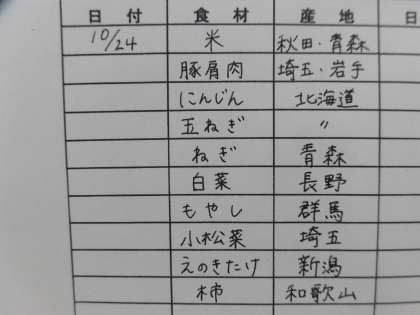 日付 食材 産地 日
10/24 米 秋田・青森
豚肩肉 埼玉・岩手
にんじん 北海道
玉ねぎ 〃
ねぎ 青森
白菜 長野
もやし 群馬
小松菜 埼玉
えのきたけ 新潟
柿 和歌山